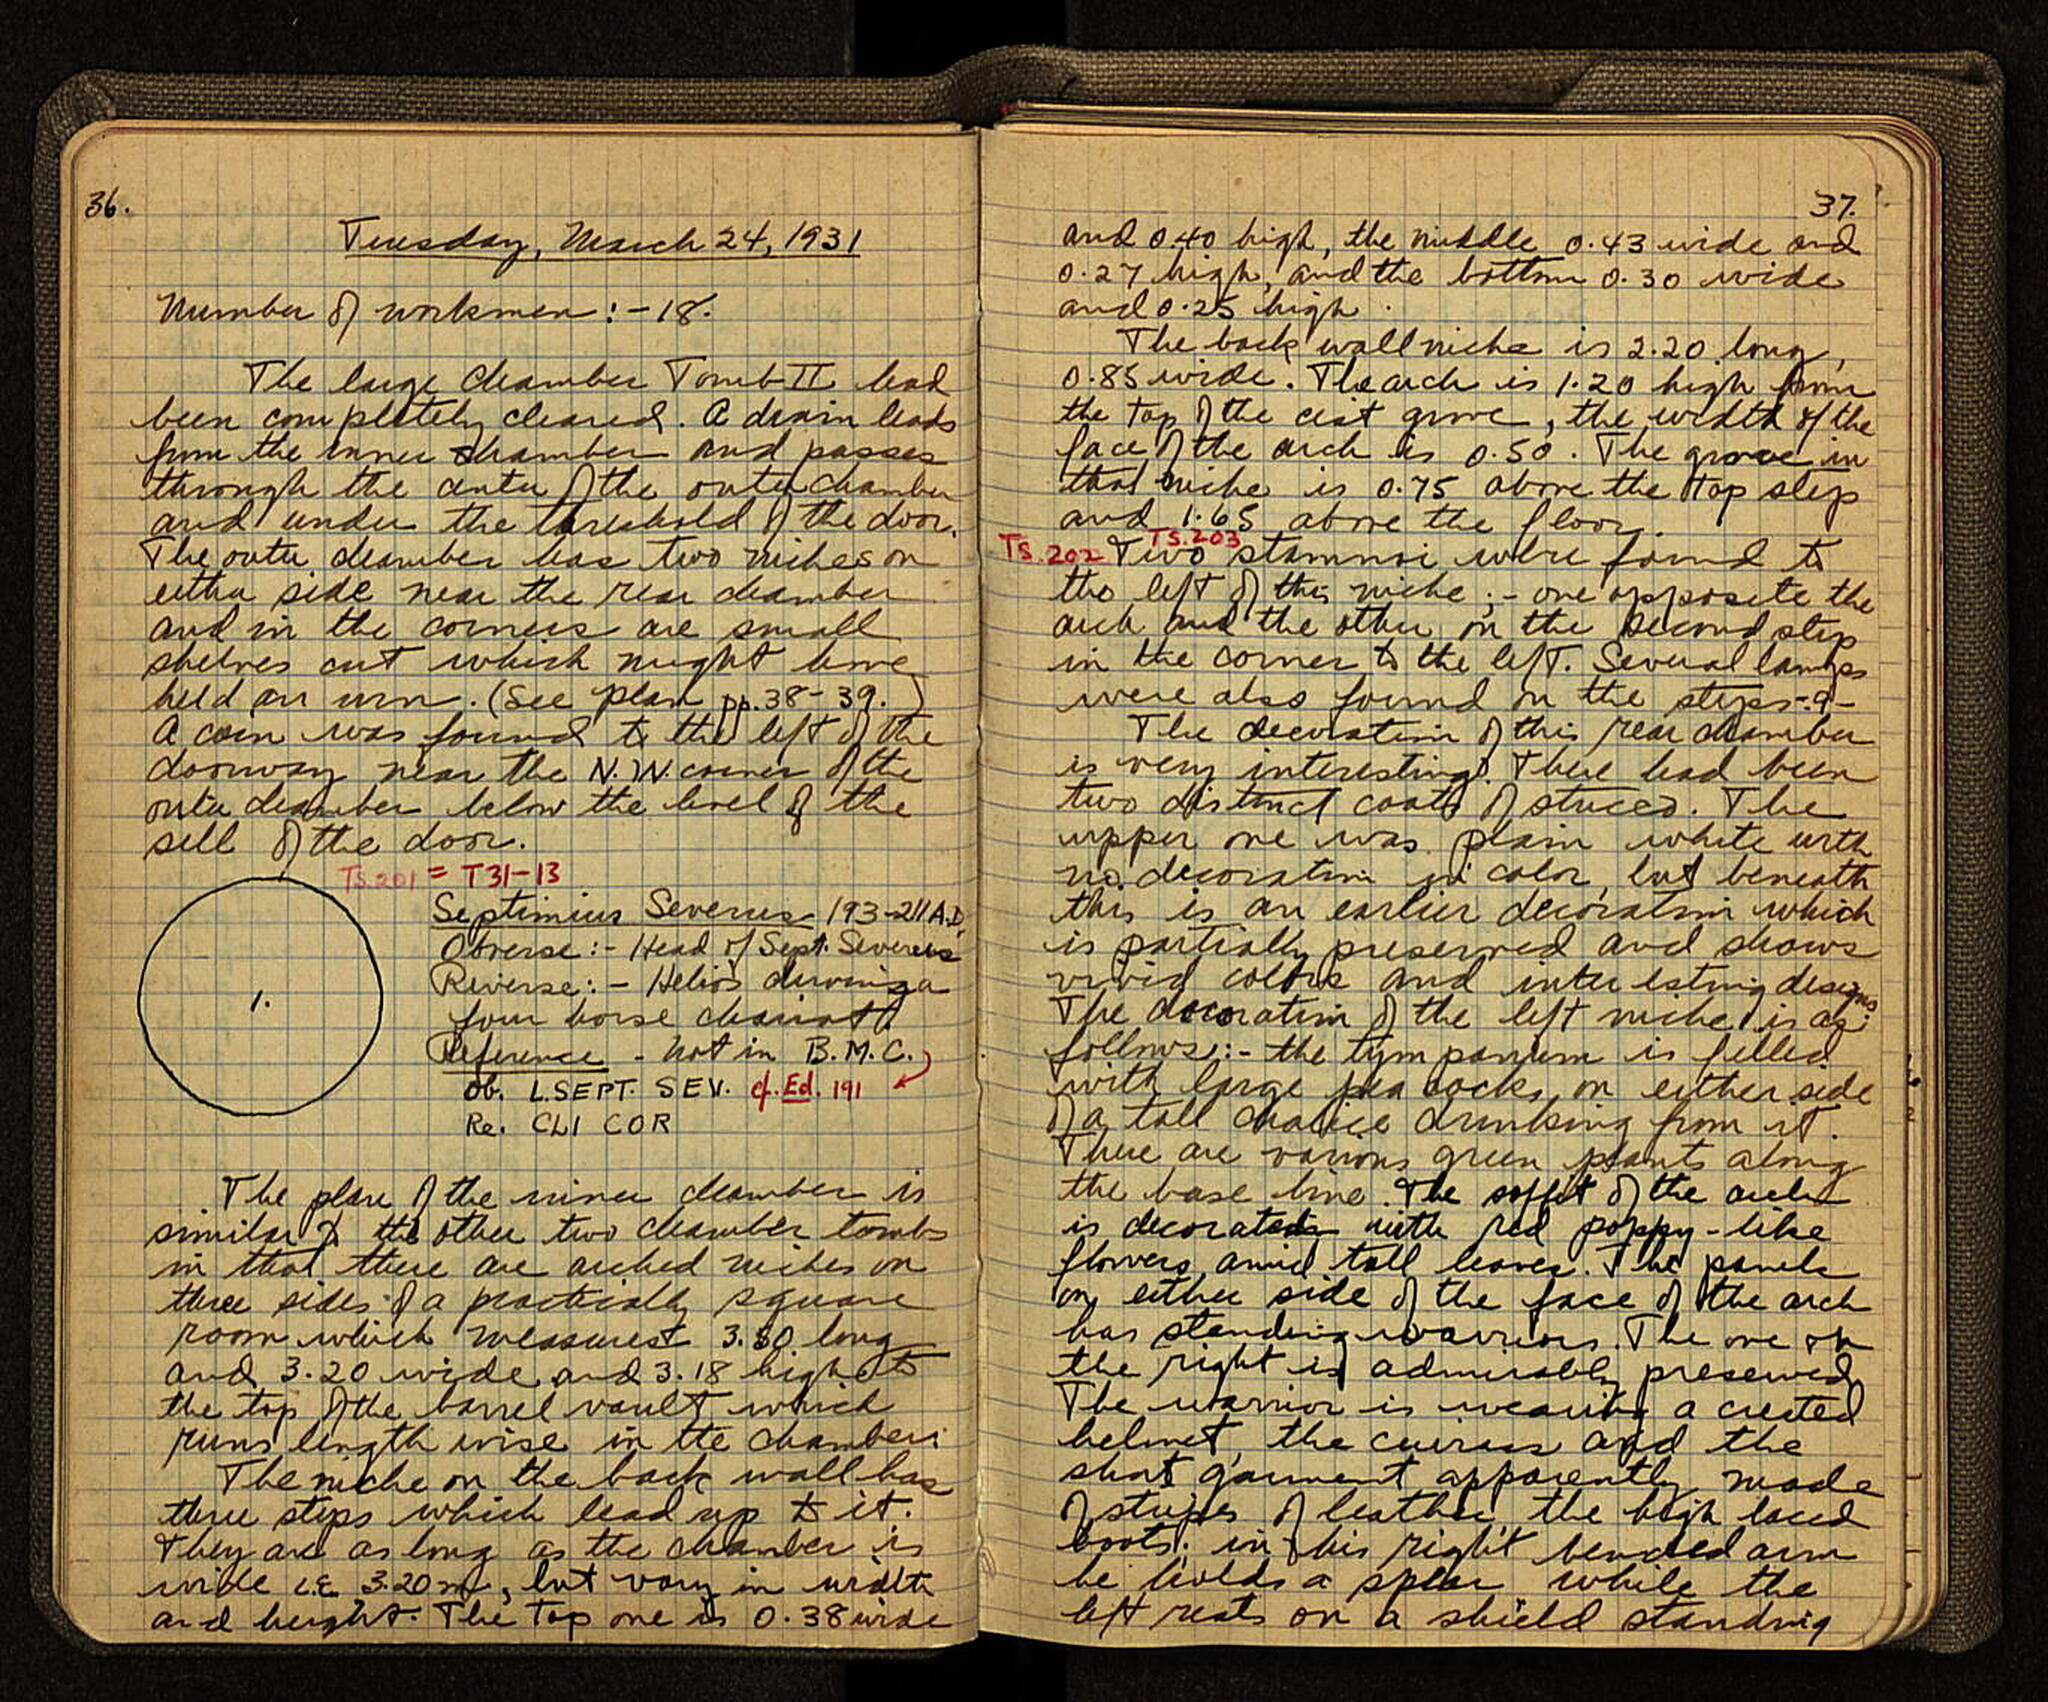 36.
Tuesday, March 24, 1931
Number of workmen :- 18.
The large chamber Tomb II had
been completely cleared. A drain leads
from the inner chamber and passes
through the center of the outer chamber
and under the threshold of the door.
The outer chamber has two niches on
either side near the rear chamber
and in the corners are small
shelves cut which might have
held an urn. (See plan pp. 38-39.)
A coin was found to the left of the
doorway near the N.W. corner of the
outer chamber below the level of the
sill of the door.
TS.201 = T31-13
1.
Septimius Severus 193-211 A.D.
Obverse :- Head of Sept. Severus
Reverse :- Helios driving a
four horse chariot.
Reference - Not in B.M.C.
Ob. L.SEPT. SEV. cf. Ed. 191
Re. CLI COR
The plan of the inner chamber is
similar to the other two chamber tombs
in that there are arched niches on
three sides of a practically square
room which measures 3.30 long
and 3.20 wide and 3.18 high to
the top of the barrel vault which
runs length wise in the chamber.
The niche on the back wall has
three steps which lead up to it.
They are as long as the chamber is
wide i.e. 3.20 m, but vary in width
and height. The top one is 0.38 wide
37.
and 0.40 high, the middle 0.43 wide and
0.27 high, and the bottom 0.30 wide
and 0.25 high.
The back wall niche is 2.20 long,
0.85 wide. The arch is 1.20 high from
the top of the cist grove, the width of the
face of the arch is 0.50. The grove in
that niche is 0.75 above the top step
and 1.65 above the floor.
TS.202 TS.203
Two stamnoi were found to
the left of this niche :- one opposite the
arch and the other on the second step
in the corner to the left. Several lamps
were also found on the steps -9-
The decoration of this rear chamber
is very interesting. There had been
two distinct coats of stucco. The
upper one was plain white with
no decoration in color, but beneath
this is an earlier decoration which
is partially preserved and shows
vivid colors and interesting designs
The decoration of the left niche is as
follows :- the tympanum is filled
with large pea cocks on either side
of a tall chalice drinking from it.
There are various green plants along
the base line. The soffit of the arch
is decorated with red poppy-like
flowers amid tall leaves. The panels
on either side of the face of the arch
has standing warriors. The one on
the right is admirably preserved.
The warrior is wearing a crested
helmet, the cuirass and the
short garment apparently made
of stripes of leather the high laced
boots. in his right bended arm
he holds a spear while the
left rests on a shield standing